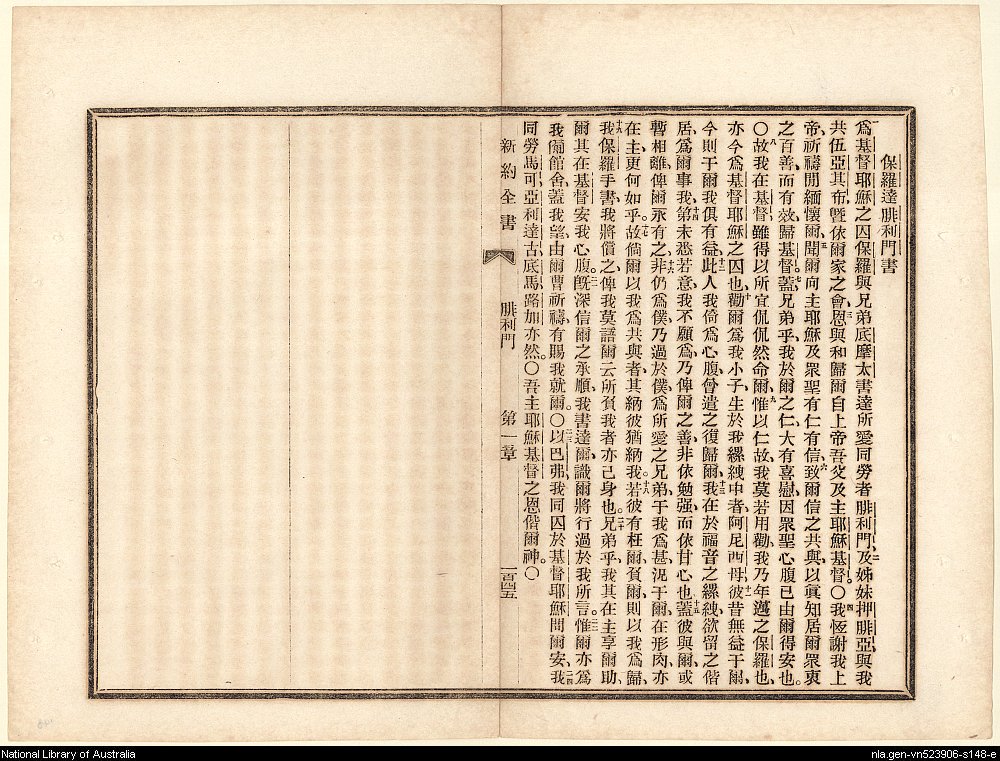 保羅達腓利門書
爲基督耶穌之囚保羅與兄弟底摩太書達所愛同勞者腓利門二及姊妹押腓亞、與我
共伍亞其布、曁依爾家之會、三恩與和歸爾自上帝吾父及主耶穌基督。〇四我恆謝我上
帝、祈禱間緬懷爾、五聞爾向主耶穌及眾聖有仁有信、六致爾信之共與、以眞知居爾眾衷
之百善、而有效歸基督。七蓋兄弟乎、我於爾之仁、大有喜慰、因眾聖心腹已由爾得安也。
〇八故我在基督、雖得以所宜侃侃然命爾、九惟以仁故、我莫若用勸、我乃年邁之保羅也、
亦今爲基督耶穌之囚也、十勸爾爲我小子生於我縲絏中者、阿尼西母、十一彼昔無益于爾、
今則于爾我俱有益、十二此人我倚爲心腹、曾遣之復歸爾、十三我在於福音之縲絏、欲留之偕
居、爲爾事我、十四第未悉若意、我不願爲、乃俾爾之善、非依勉强、而依甘心也、十五蓋彼與爾或
暫相離、俾爾永有之、十六非仍爲僕、乃過於僕、爲所愛之兄弟、于我爲甚、況于爾、在形肉、亦
在主、更何如乎。十七故倘爾以我爲共與者、其納彼猶納我。十八若彼有枉爾負爾、則以我爲歸、
十九我保羅手書、我將償之、俾我莫語爾云、所負我者、亦己身也。二十兄弟乎、我其在主享爾助、
爾其在基督安我心腹。二一旣深信爾之承順、我書達爾、識爾將行過於我所言。二二惟爾亦爲
我備館舍、蓋我望由爾曹祈禱、有賜我就爾。〇二三以巴弗、我同囚於基督耶穌、問爾安、二四我
同勞馬可、亞利達古、底馬、路加亦然。〇吾主耶穌基督之恩偕爾神。〇
新約全書
腓利門
第一章
一百四五
National Library of Australia
nla.gen-vn523906-s148-e